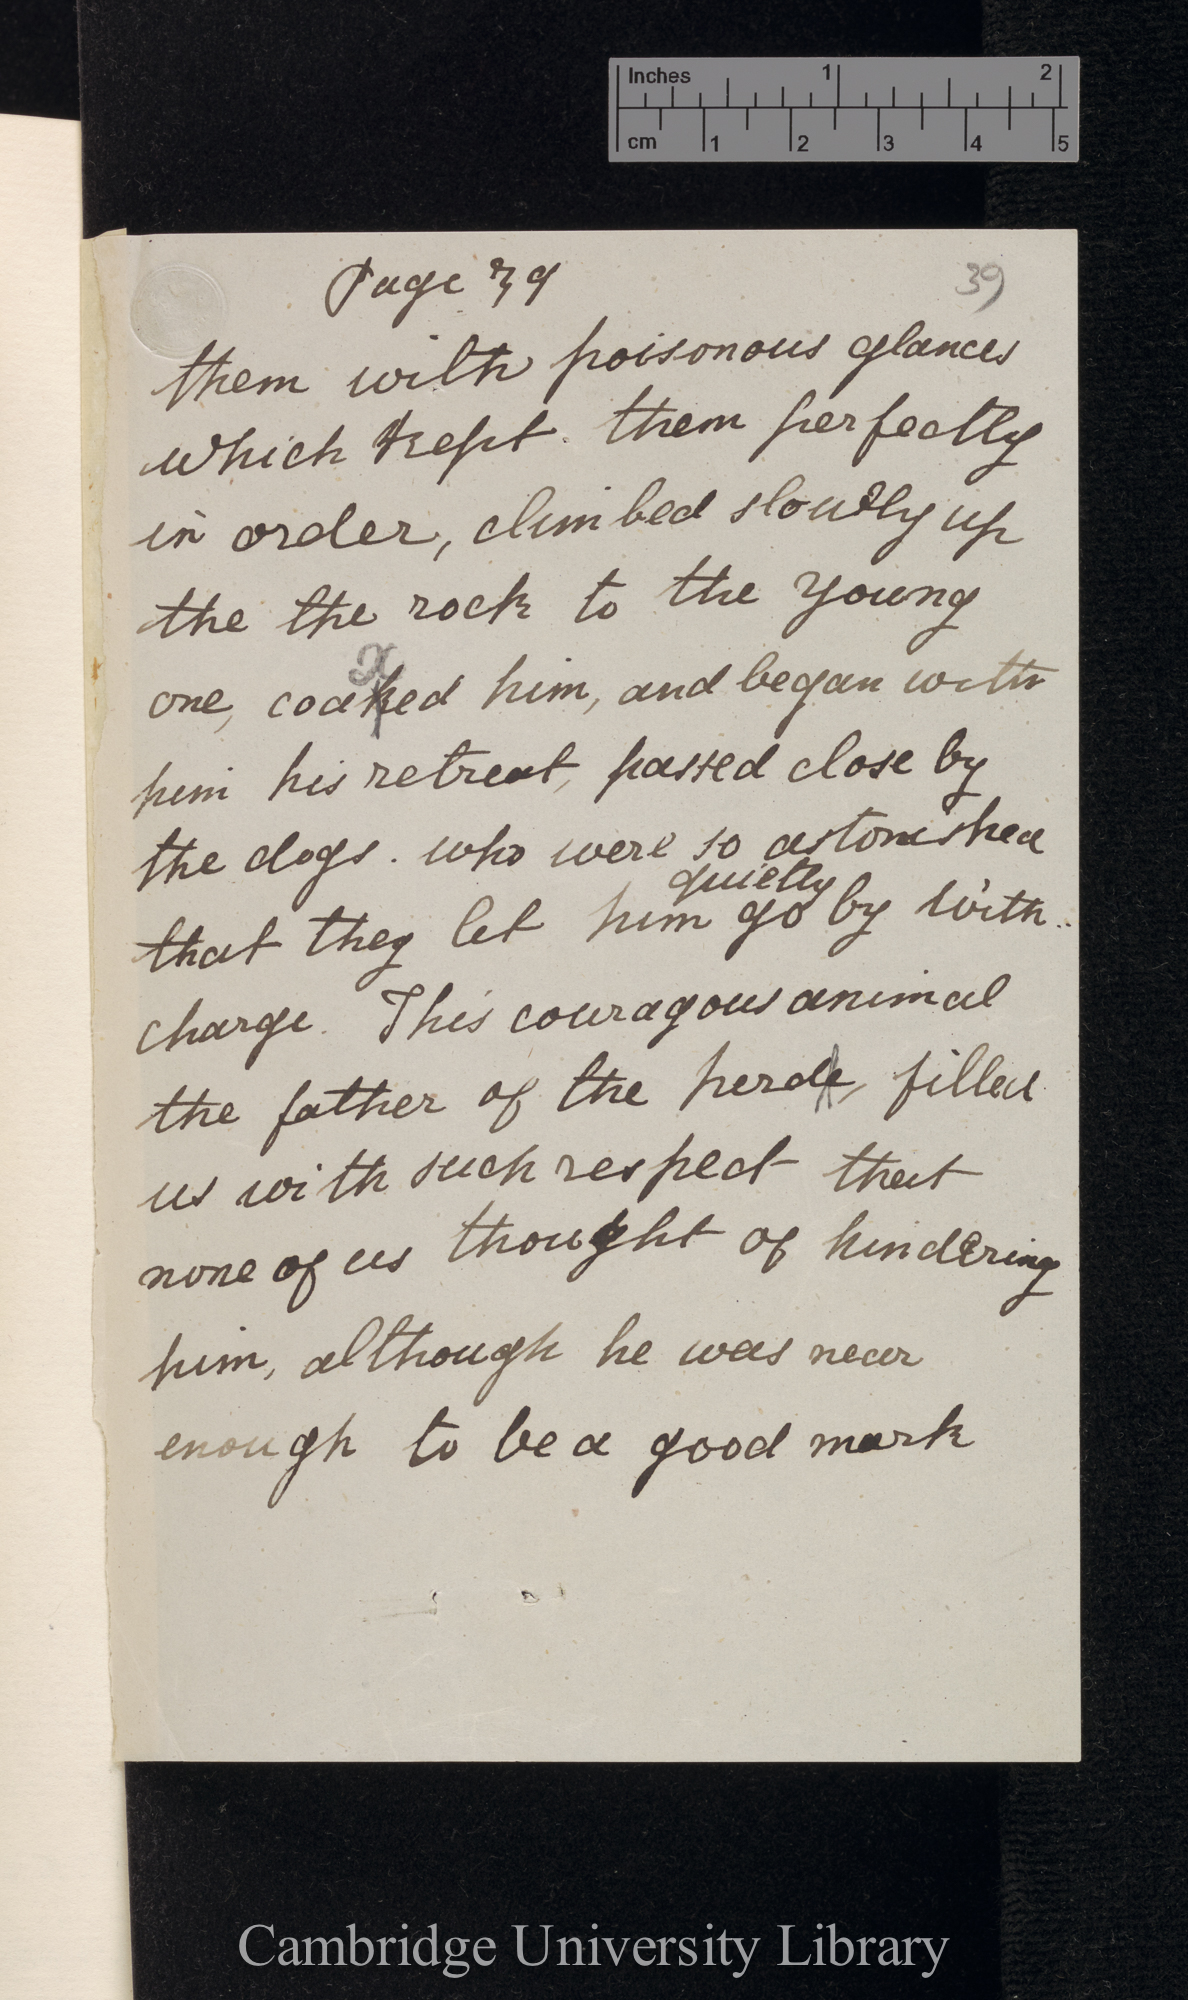 Inches 1 2
cm 1 2 3 4 5
Page 39
39
them with poisonous glances
which kept them perfectly
in order, climbed slowly up
the the rock to the young
one, coaxed him, and began with
him his retreat, passed close by
the dogs. who were so astonished
quietly
that they let him go by with
charge. This couragous animal
the father of the herd, filled
us with such respect that
none of us thought of hindering
him, although he was near
enough to be a good mark
Cambridge University Library